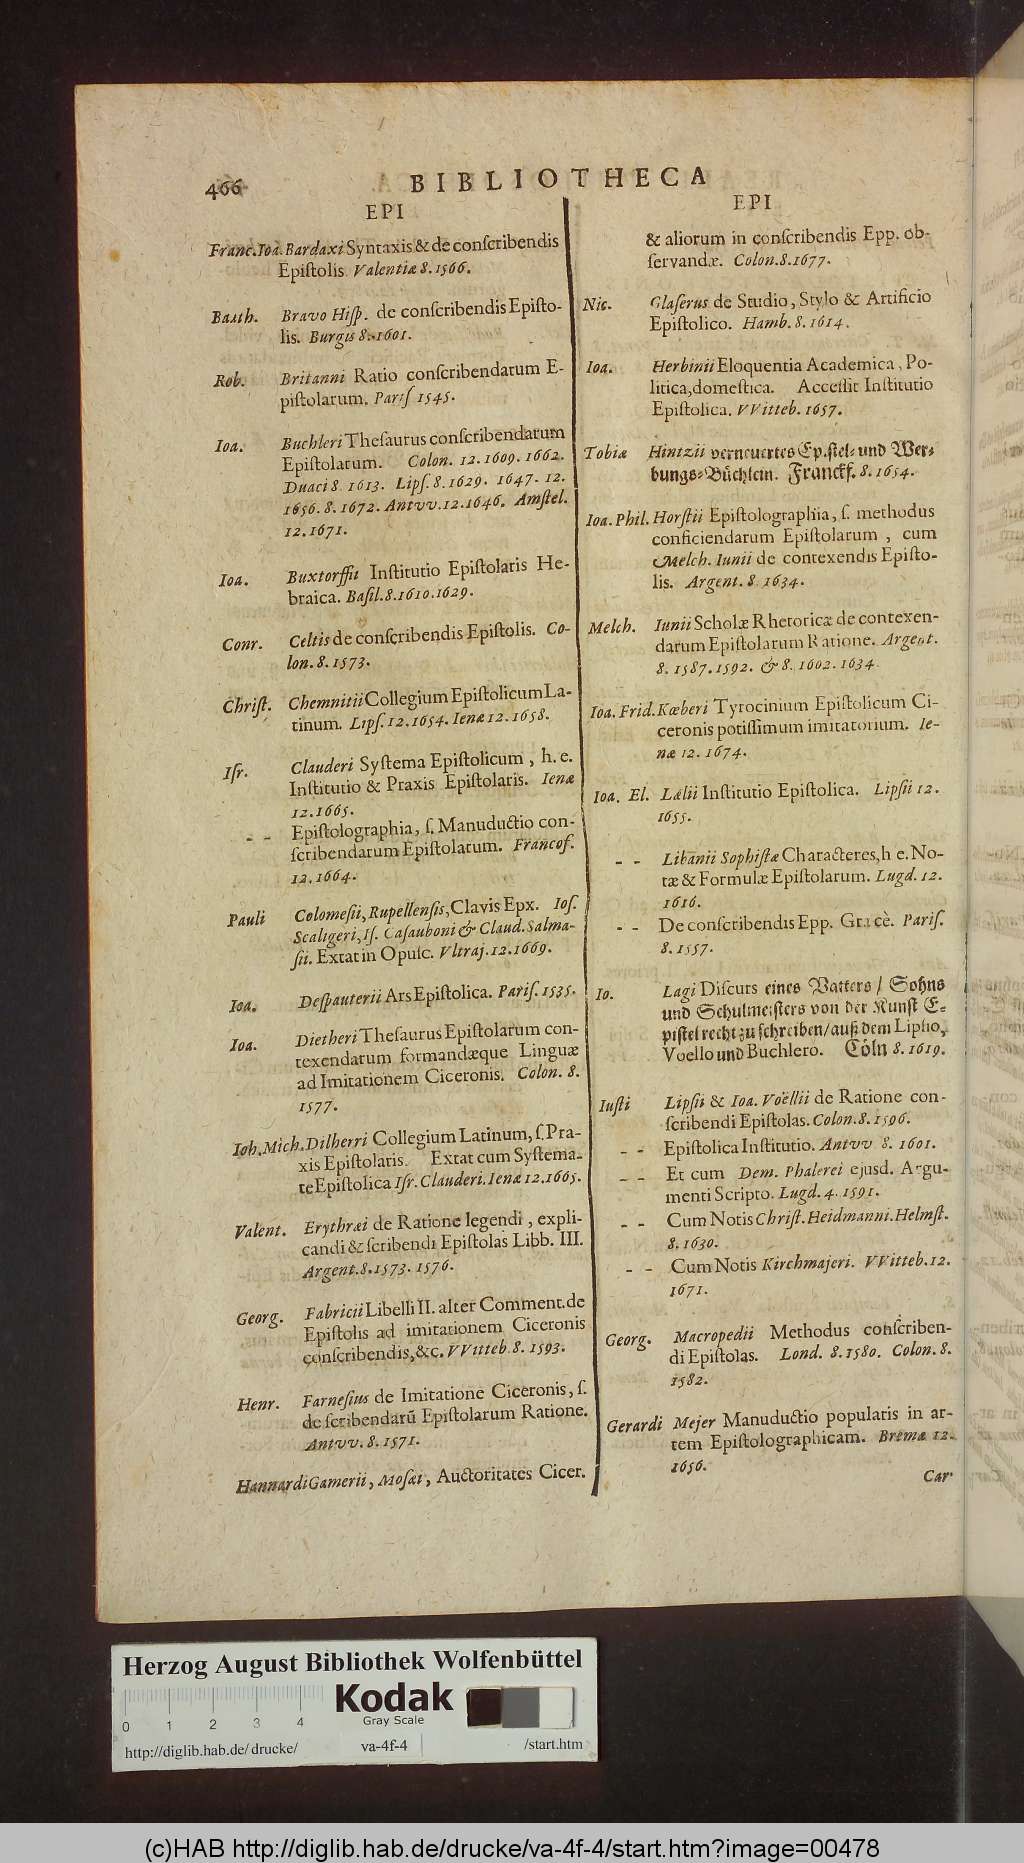 466
BIBLIOTHECA
EPI
Franc. Ioa. Bardaxi Syntaxis & de conſcribendis
Epiſtolis. Valentiæ 8. 1566.
Barth. Bravo Hiſp. de conſcribendis Epiſto-
lis. Burgis 8. 1601.
Rob. Britanni Ratio conſcribendarum E-
piſtolarum. Pariſ 1545.
Ioa. Buchleri Theſaurus conſcribendarum
Epiſtolarum. Colon. 12. 1609. 1662.
Duaci 8. 1613. Lipſ. 8. 1629. 1647. 12.
1656. 8. 1672. Antvv. 12. 1646. Amſtel.
12. 1671.
Ioa. Buxtorffii Inſtitutio Epiſtolaris He-
braica. Baſil. 8. 1610. 1629.
Conr. Celtis de conſcribendis Epiſtolis. Co-
lon. 8. 1573.
Chriſt. Chemnitii Collegium Epiſtolicum La-
tinum. Lipſ. 12. 1654. Ienæ 12. 1658.
Iſr. Clauderi Syſtema Epiſtolicum, h. e.
Inſtitutio & Praxis Epiſtolaris. Ienæ
12. 1665.
- - Epiſtolographia, ſ. Manuductio con-
ſcribendarum Epiſtolarum. Francof.
12. 1664.
Pauli Colomeſii, Rupellenſis, Clavis Epx. Ioſ.
Scaligeri, Iſ. Caſauboni & Claud. Salma-
ſii. Extat in Opuſc. Vltraj. 12. 1669.
Ioa. Deſpauterii Ars Epiſtolica. Pariſ. 1535.
Ioa. Dietheri Theſaurus Epiſtolarum con-
texendarum formandæque Linguæ
ad Imitationem Ciceronis. Colon. 8.
1577.
Ioh. Mich. Dilherri Collegium Latinum, ſ. Pra-
xis Epiſtolaris. Extat cum Syſtema-
te Epiſtolica Iſr. Clauderi. Ienæ 12. 1665.
Valent. Erythræi de Ratione legendi, expli-
candi & ſcribendi Epiſtolas Libb. III.
Argent. 8. 1573. 1576.
Georg. Fabricii Libelli II. alter Comment. de
Epiſtolis ad imitationem Ciceronis
conſcribendis, &c. VVitteb. 8. 1593.
Henr. Farneſius de Imitatione Ciceronis, ſ.
de ſcribendarū Epiſtolarum Ratione.
Antvv. 8. 1571.
Hannardi Gamerii, Moſæi, Auctoritates Cicer.
EPI
& aliorum in conſcribendis Epp. ob-
ſervandæ. Colon. 8. 1677.
Nic. Glaſerus de Studio, Stylo & Artificio
Epiſtolico. Hamb. 8. 1614.
Ioa. Herbinii Eloquentia Academica, Po-
litica, domeſtica. Acceſſit Inſtitutio
Epiſtolica. VVitteb. 1657.
Tobiæ Hintzii verneuertes Epiſtel- und Wer-
bungs-Büchlein. Franckf. 8. 1654.
Ioa. Phil. Horſtii Epiſtolographia, ſ. methodus
conficiendarum Epiſtolarum, cum
Melch. Iunii de contexendis Epiſto-
lis. Argent. 8. 1634.
Melch. Iunii Scholæ Rhetoricæ de contexen-
darum Epiſtolarum Ratione. Argent.
8. 1587. 1592. & 8. 1602. 1634.
Ioa. Frid. Kœberi Tyrocinium Epiſtolicum Ci-
ceronis potiſſimum imitatorium. Ie-
næ 12. 1674.
Ioa. El. Lælii Inſtitutio Epiſtolica. Lipſii 12.
1655.
- - Libanii Sophiſtæ Characteres, h e. No-
tæ & Formulæ Epiſtolarum. Lugd. 12.
1616.
- - De conſcribendis Epp. Græcè. Pariſ.
8. 1557.
Io. Lagi Diſcurs eines Vatters / Sohns
und Schulmeiſters von der Kunſt E-
piſtel recht zu ſchreiben/ auß dem Lipſio,
Voello und Buchlero. Cöln 8. 1619.
Iuſti Lipſii & Ioa. Voëllii de Ratione con-
ſcribendi Epiſtolas. Colon. 8. 1596.
- - Epiſtolica Inſtitutio. Antvv 8. 1601.
- - Et cum Dem. Phalerei ejusd. Argu-
menti Scripto. Lugd. 4. 1591.
- - Cum Notis Chriſt. Heidmanni. Helmſt.
8. 1630.
- - Cum Notis Kirchmajeri. VVitteb. 12.
1671.
Georg. Macropedii Methodus conſcriben-
di Epiſtolas. Lond. 8. 1580. Colon. 8.
1582.
Gerardi Mejer Manuductio popularis in ar-
tem Epiſtolographicam. Bremæ 12.
1656.
Car-
Herzog August Bibliothek Wolfenbüttel
Kodak
Gray Scale
0 1 2 3 4
http://diglib.hab.de/drucke/ va-4f-4 /start.htm
(c)HAB http://diglib.hab.de/drucke/va-4f-4/start.htm?image=00478